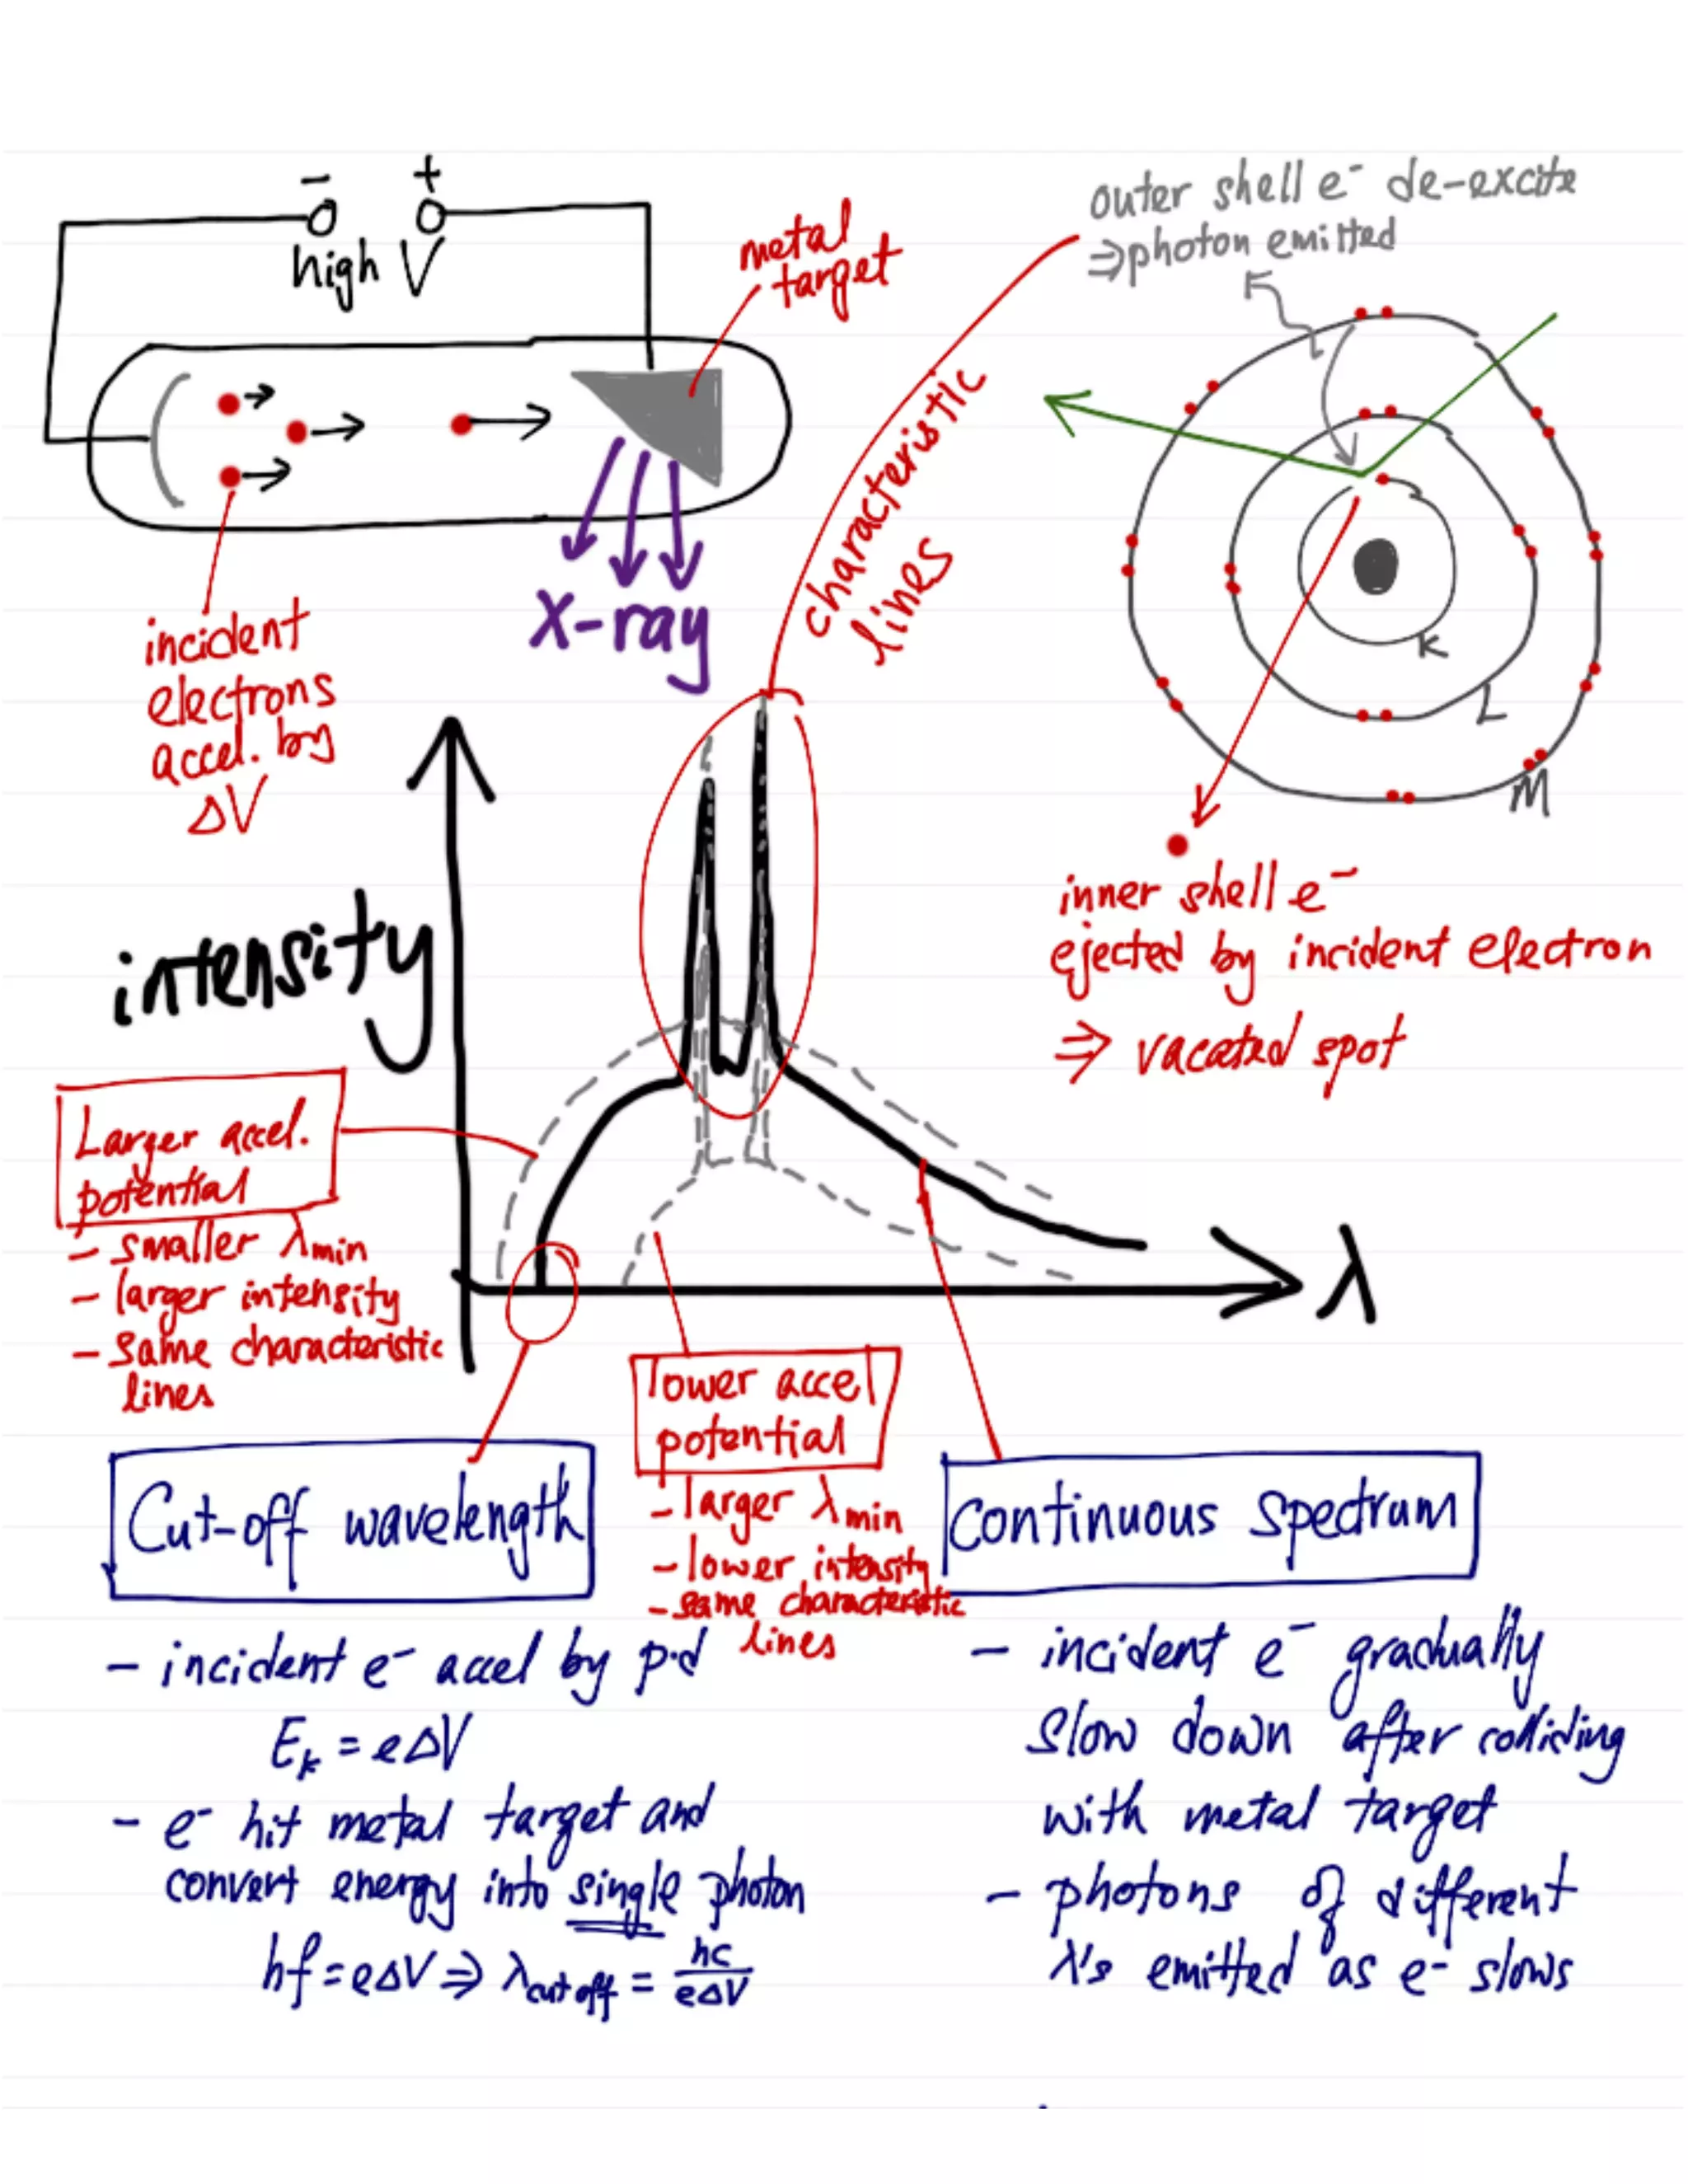 - +
high V
metal
target
outer shell e⁻ de-excite
⇒ photon emitted
characteristic
lines
X-ray
incident
electrons
accel. by
ΔV
K
L
M
inner shell e⁻
ejected by incident electron
⇒ vacated spot
intensity
λ
Larger accel.
potential
- smaller λmin
- larger intensity
- same characteristic
lines
lower accel
potential
- larger λmin
- lower intensity
- same characteristic
lines
Cut-off wavelength
- incident e⁻ accel by p.d
Ek = eΔV
- e⁻ hit metal target and
convert energy into single photon
hf = eΔV ⇒ λcut off = hc/eΔV
Continuous Spectrum
- incident e⁻ gradually
slow down after colliding
with metal target
- photons of different
λ's emitted as e⁻ slows